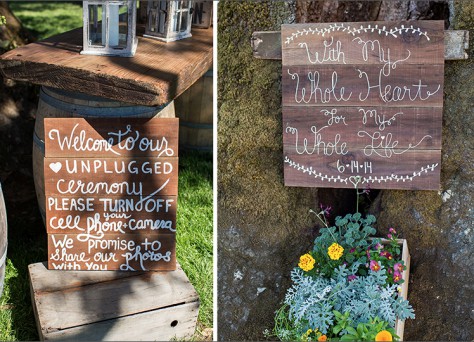 Welcome to our
♥ UNPLUGGED
ceremony
PLEASE TURN OFF
your
cell phone + camera
We promise to
share our photos
with you
With My
Whole Heart
For My
Whole Life
6·14·14